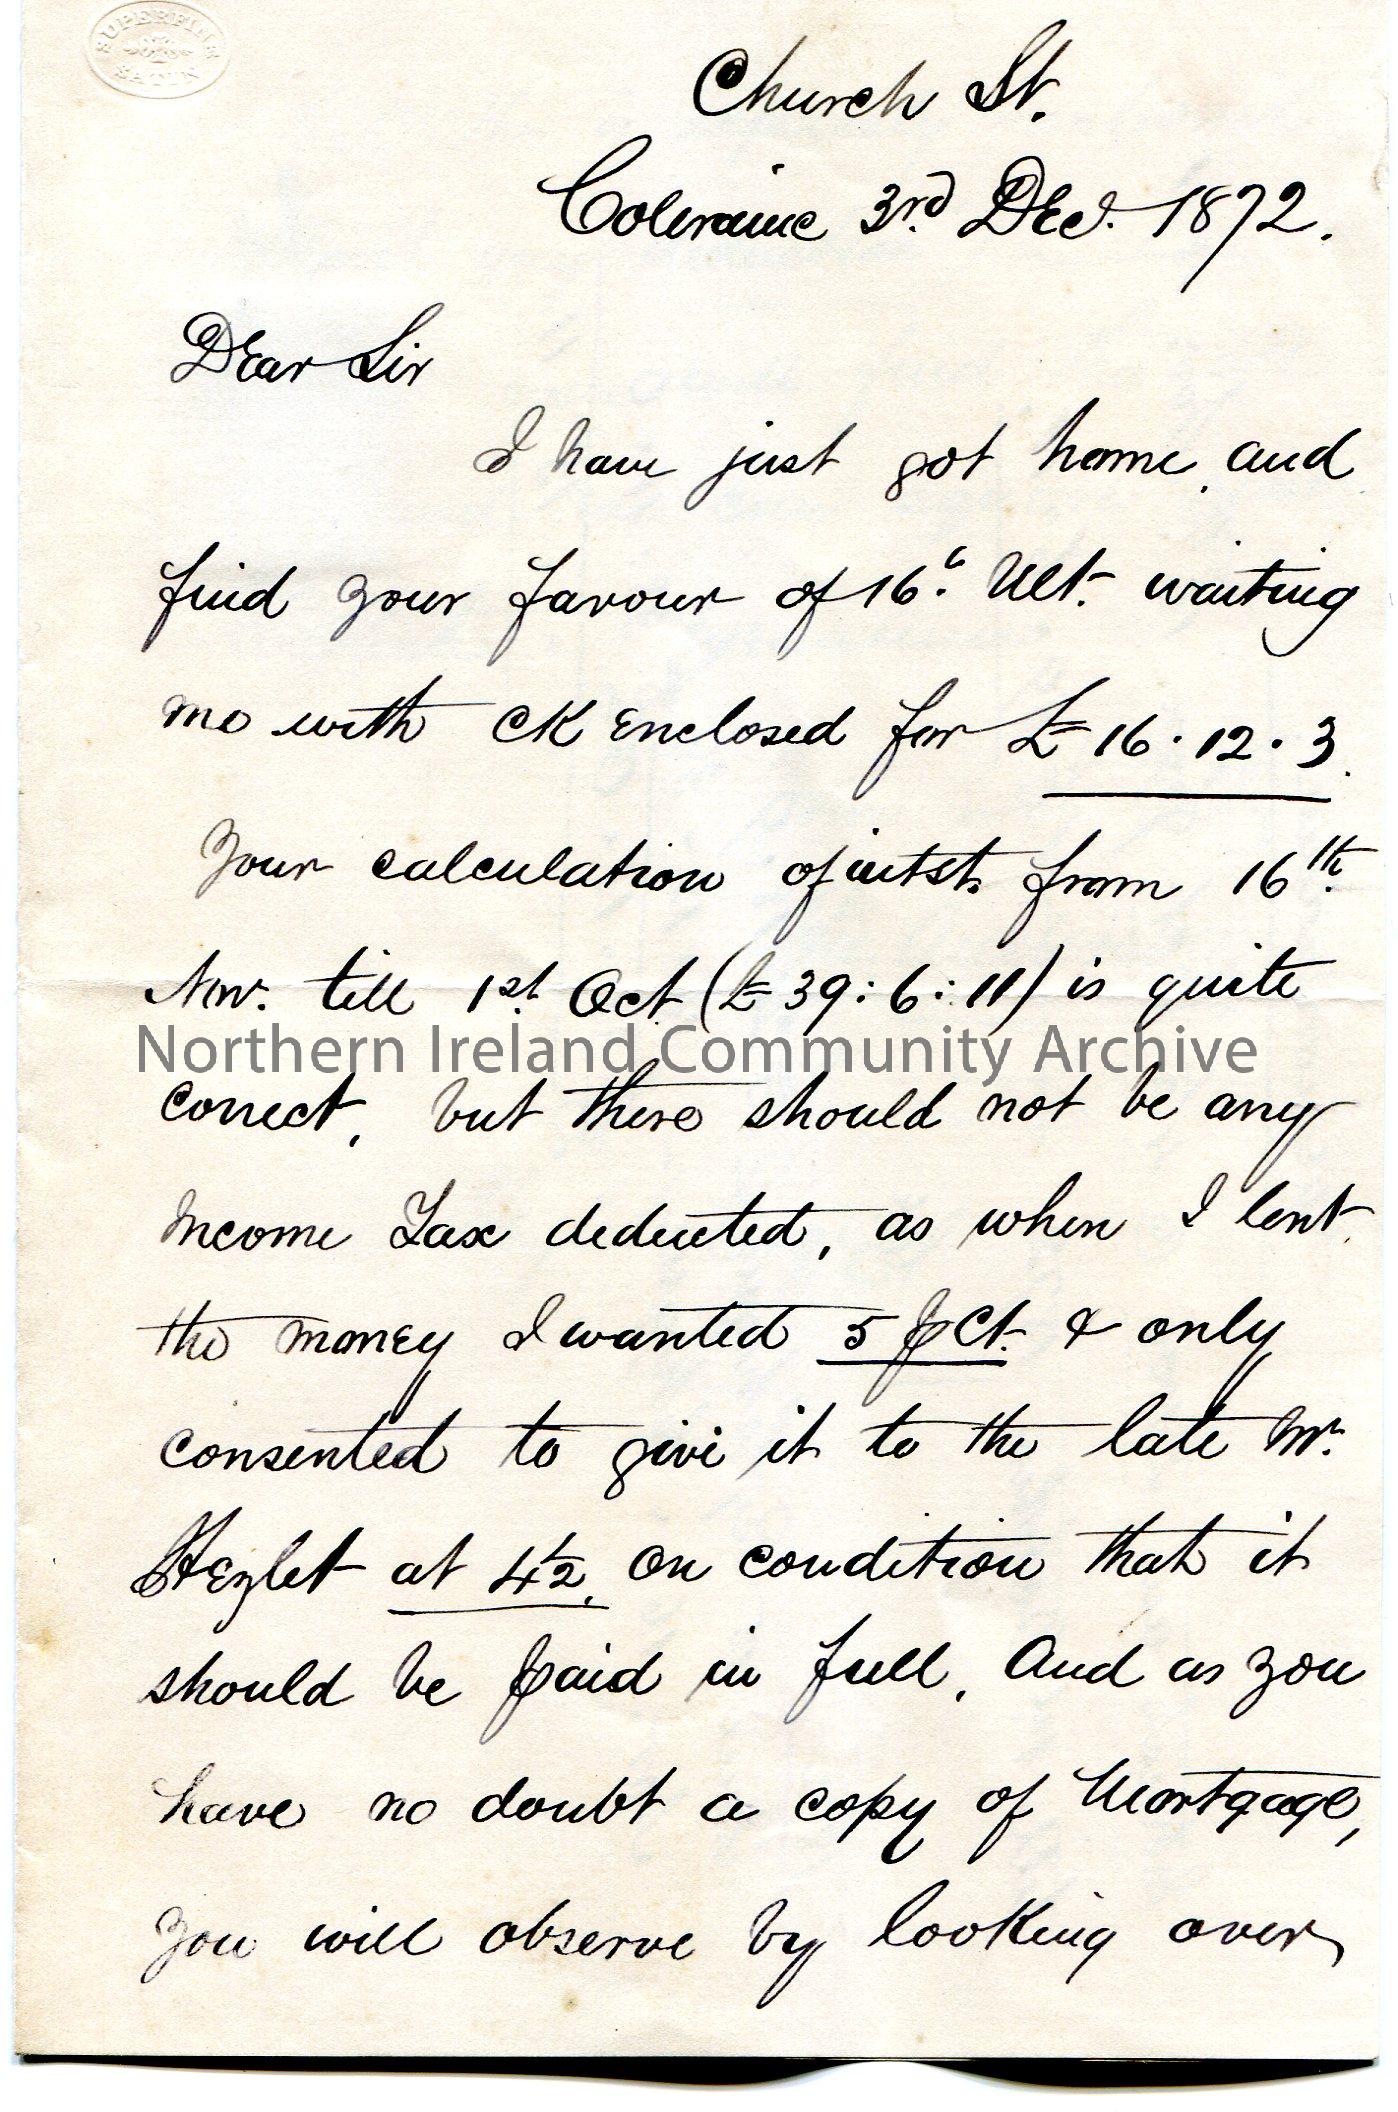 SUPERFINE
SATIN
Church St.
Coleraine 3rd Dec. 1872.
Dear Sir
I have just got home, and
find your favour of 16th Ult. waiting
me with CK enclosed for £16.12.3.
Your calculation of intst. from 16th
Nov. till 1st Oct (£39:6:11) is quite
Northern Ireland Community Archive
correct, but there should not be any
Income Tax deducted, as when I lent
the money I wanted 5 p Ct. & only
consented to give it to the late Mr.
Hezlet at 4½, on condition that it
should be paid in full. And as you
have no doubt a copy of Mortgage,
you will observe by looking over